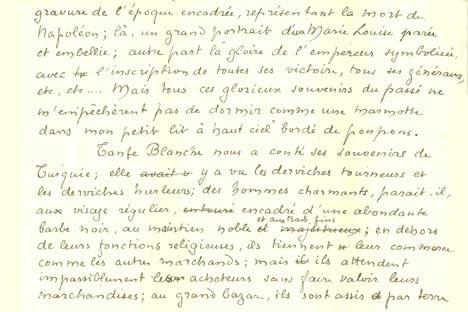 gravure de l'époque encadrée, représentant la mort de
Napoléon; là, un grand portrait de Marie Louise parée
et embellie; autre part la gloire de l'empereur symbolisée
avec l'inscription de toutes ses victoire, tous ses généraux,
etc, etc.... Mais tous ces glorieux souvenirs du passé ne
m'empêchèrent pas de dormir comme une marmotte
dans mon petit lit à haut ciel bordé de pompons.
Tante Blanche nous a conté ses souvenirs de
Turquie; elle avait y a vu les derviches tourneurs et
les derviches hurleurs; des hommes charmants, parait-il,
aux visage régulier, entouré encadré d'une abondante
barbe noir, au maintien noble et majestrieux; en dehors
et aux traits fins
de leurs fonctions religieuses, ils tiennent leur commerce
comme les autres marchands; mais ils attendent
impassiblement les acheteurs sans faire valoir leurs
marchandises; au grand bazar, ils sont assis par terre